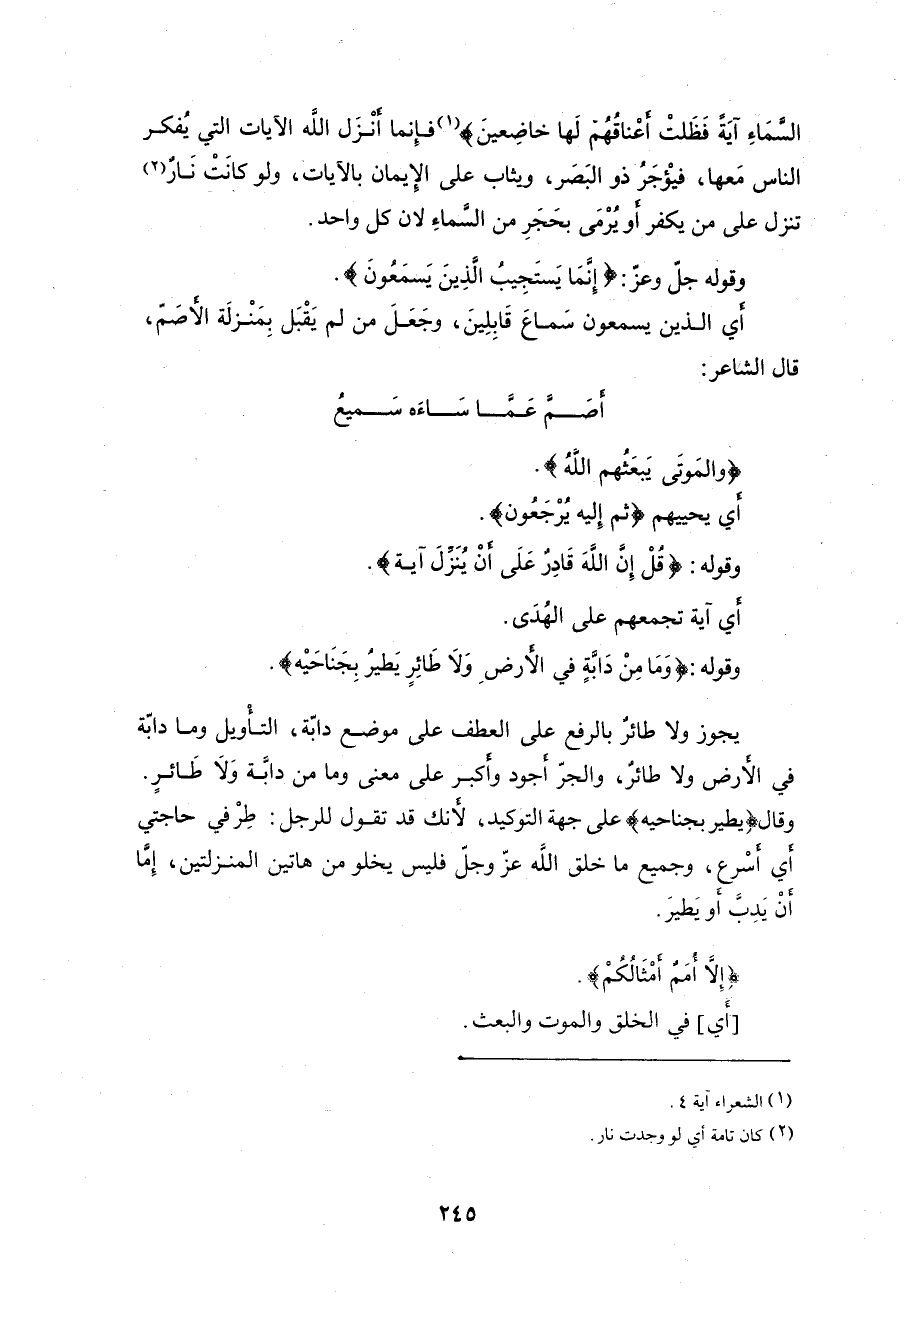 السَّمَاءِ آيَةً فَظَلتْ أَعْناقُهُمْ لَها خاضِعينَ﴾(١) فـإِنما أَنْـزَل اللَّه الآيات التي يُفكـر
الناس مَعها، فيؤْجَرُ ذو البَصَر، ويثاب على الإيمان بالآيات، ولو كانَتْ نَـارٌ(٢)
تنزل على من يكفر أَو يُرْمَى بحَجَرٍ من السَّماءِ لان كل واحد.
وقوله جلّ وعزّ: ﴿إِنَّمَا يَستَجِيبُ الَّذِينَ يَسمَعُونَ﴾.
أَي الـذين يسمعون سَمـاعَ قَابِلِينَ، وجَعَـلَ من لم يَقْبَل بِمَنْـزلَة الأَصَمّ،
قال الشاعر:
أَصَـــمَّ عَـمَّـــا سَـــاءَه سَـــميعُ
﴿والمَوتَى يَبعَثُهم اللَّهُ﴾.
أَي يحييهم ﴿ثم إليه يُرْجَعُون﴾.
وقوله: ﴿قُلْ إِنَّ اللَّهَ قَادِرٌ عَلَى أَنْ يُنَزِّلَ آيـة﴾.
أَي آية تجمعهم على الهُدَى.
وقوله: ﴿وَمَا مِنْ دَابَّةٍ في الأَرض وَلَا طَائِرٍ يَطيرُ بِجَنَاحَيْه﴾.
يجوز ولا طائرٌ بالرفع على العطف على موضـع دابّة، التـأْويل ومـا دابّة
في الأَرض ولا طائرٌ، والجرّ أجود وأكبـر على معنى وما من دابَّـة وَلَا طَـائـرٍ.
وقال ﴿يطير بجناحيه﴾ على جهة التوكيد، لأَنك قد تقـول للرجل: طِرْ في حاجتي
أَي أَسْرع، وجميع ما خلق اللَّه عزّ وجلّ فليس يخلو من هاتين المنـزلتين، إِمَّا
أَنْ يَدِبَّ أَو يَطيرَ.
﴿إِلَّا أُمَمٌ أَمْثَالُكُمْ﴾.
[أَي] في الخلق والموت والبعث.
(١) الشعراء آية ٤.
(٢) كان تامة أي لو وجدت نار.
٢٤٥